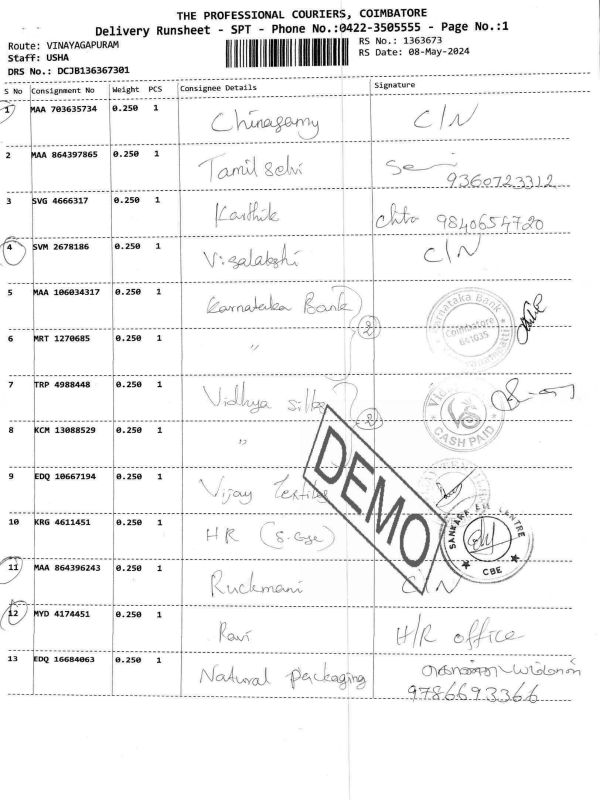 THE PROFESSIONAL COURIERS, COIMBATORE
Delivery Runsheet - SPT - Phone No.:0422-3505555 - Page No.:1
Route: VINAYAGAPURAM
RS No.: 1363673
Staff: USHA
RS Date: 08-May-2024
DRS No.: DCJB136367301
S No Consignment No Weight PCS Consignee Details Signature
1 MAA 703635734 0.250 1 Chinasamy C/N
2 MAA 864397865 0.250 1 Tamil Selvi
9360723312
3 SVG 4666317 0.250 1 Karthik 9840654720
4 SVM 2678186 0.250 1 Visalakshi C/N
5 MAA 106034317 0.250 1 Karnataka Bank
Karnataka Bank
Coimbatore
641035
2
6 MRT 1270685 0.250 1 "
7 TRP 4988448 0.250 1 Vidhya silks
2
CASH PAID
8 KCM 13088529 0.250 1 "
DEMO
9 EDQ 10667194 0.250 1 Vijay Textiles
10 KRG 4611451 0.250 1 HR
SANKARA EYE CENTRE
CBE
11 MAA 864396243 0.250 1 Ruckmani C/N
12 MYD 4174451 0.250 1 Ravi H/R office
13 EDQ 16684063 0.250 1 Natural packaging
9786693366